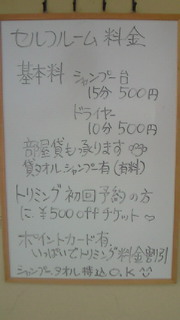 セルフルーム 料金
基本料 シャンプー台
15分 500円
ドライヤー
10分 500円
部屋貸も承ります
貸タオル シャンプー有 (有料)
トリミング 初回予約の方
に ¥500off チケット
ポイントカード有
いっぱいでトリミング料金割引
シャンプー、タオル持込 O.K